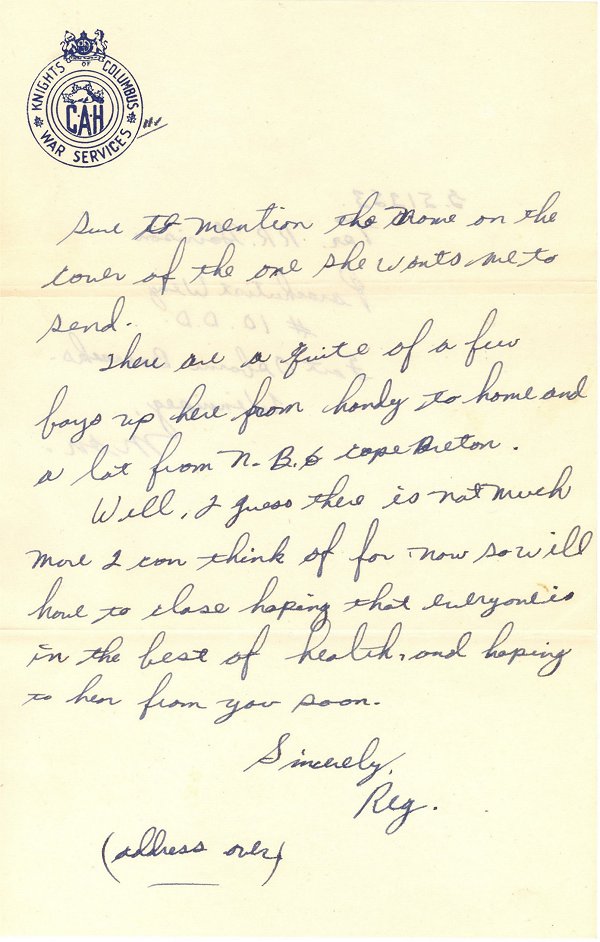 KNIGHTS OF COLUMBUS
CAH
WAR SERVICES
sure to mention the name on the
cover of the one she wants me to
send.
There are a quite of a few
boys up here from handy to home and
a lot from N.B. & cape Breton.
Well, I guess there is not much
more I can think of for now so will
have to close hoping that everyone is
in the best of health, and hoping
to hear from you soon.
Sincerely,
Reg.
(address over)